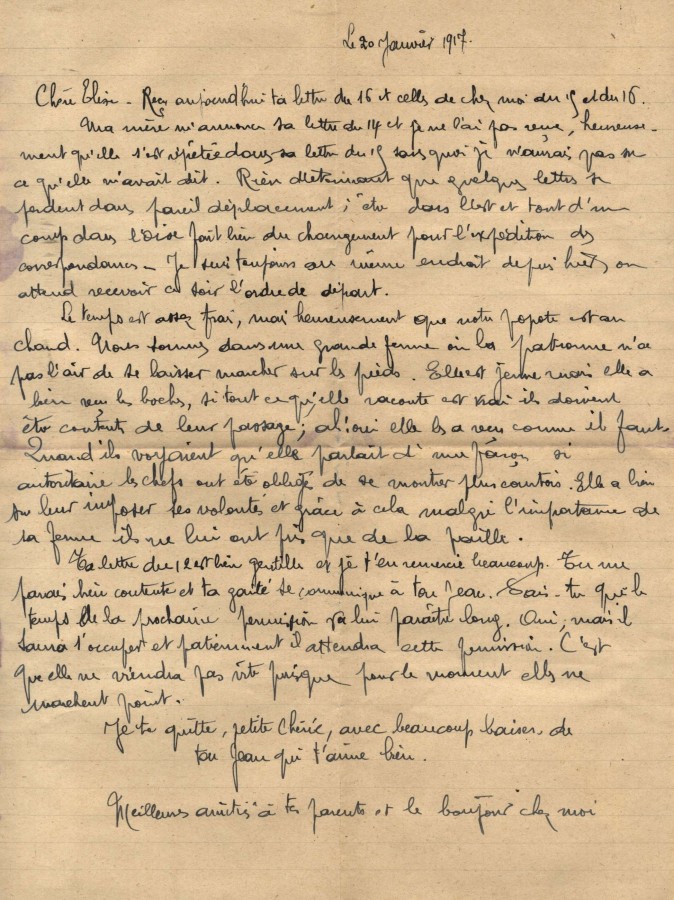 Le 20 Janvier 1917.
Chère Elise - Reçu aujourd'hui ta lettre du 16 et celles de chez moi du 15 et du 16.
Ma mère m'annonce sa lettre du 14 et je ne l'ai pas reçue, heureuse-
ment qu'elle s'est répétée dans sa lettre du 15 sans quoi je n'aurais pas su
ce qu'elle m'avait dit. Rien d'étonnant que quelques lettres se
perdent dans pareil déplacement; être dans l'Est et tout d'un
coup dans l'Oise fait bien du changement pour l'expédition des
correspondances - Je suis toujours au même endroit depuis hier, on
attend recevoir ce soir l'ordre de départ.
Le temps est assez frais, mais heureusement que notre popote est au
chaud. Nous sommes dans une grande ferme où la patronne n'a
pas l'air de se laisser marcher sur les pieds. Elle est jeune mais elle a
bien reçu les boches, si tout ce qu'elle raconte est vrai ils doivent
être contents de leur passage; ah! oui elle les a reçus comme il faut.
Quand ils voyaient qu'elle parlait d'une façon si
autoritaire les chefs ont été obligé de se montrer plus courtois. Elle a bien
su leur imposer ses volontés et grâce à cela malgré l'importance de
sa ferme ils ne lui ont pris que de la paille.
Ta lettre du 12 est bien gentille et je t'en remercie beaucoup. Tu me
parais bien contente et ta gaité se communique à ton Jean. Sais-tu que le
temps de la prochaine permission va lui paraître long. Oui, mais il
saura s'occuper et patiemment il attendra cette permission. C'est
que elle ne viendra pas vite puisque pour le moment elles ne
marchent point.
Je te quitte, petite Chérie, avec beaucoup baisers de
ton Jean qui t'aime bien.
Meilleures amitiés à tes parents et le bonjour chez moi